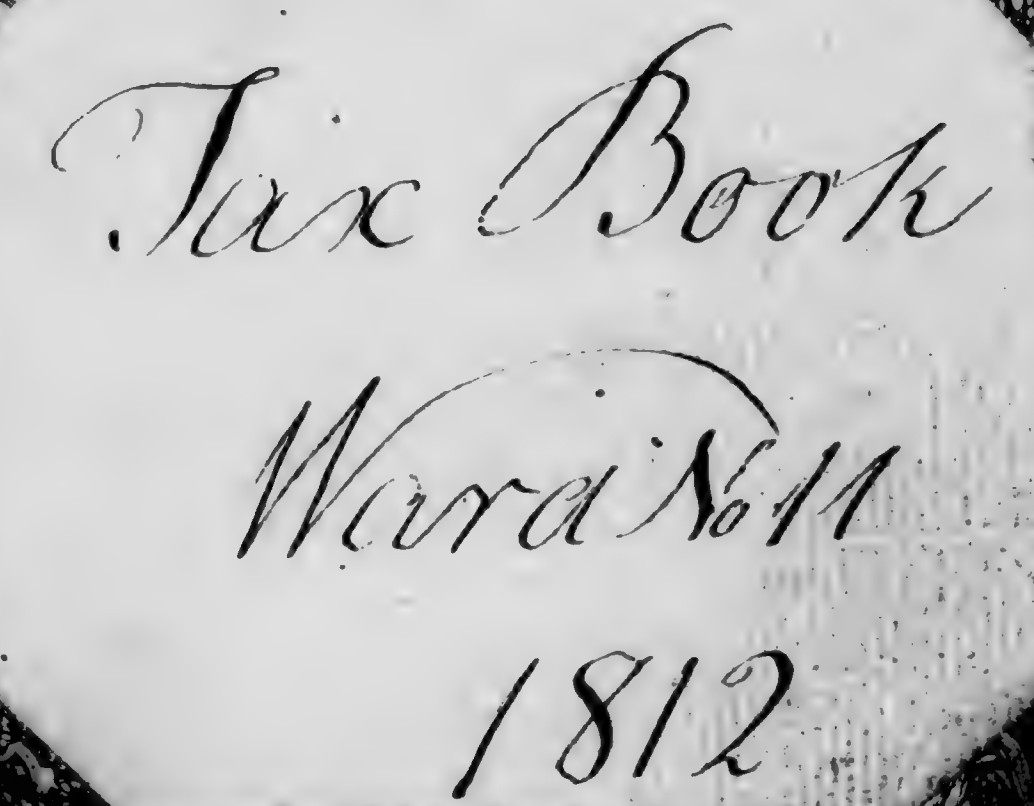 Tax Book
Ward No 11
1812